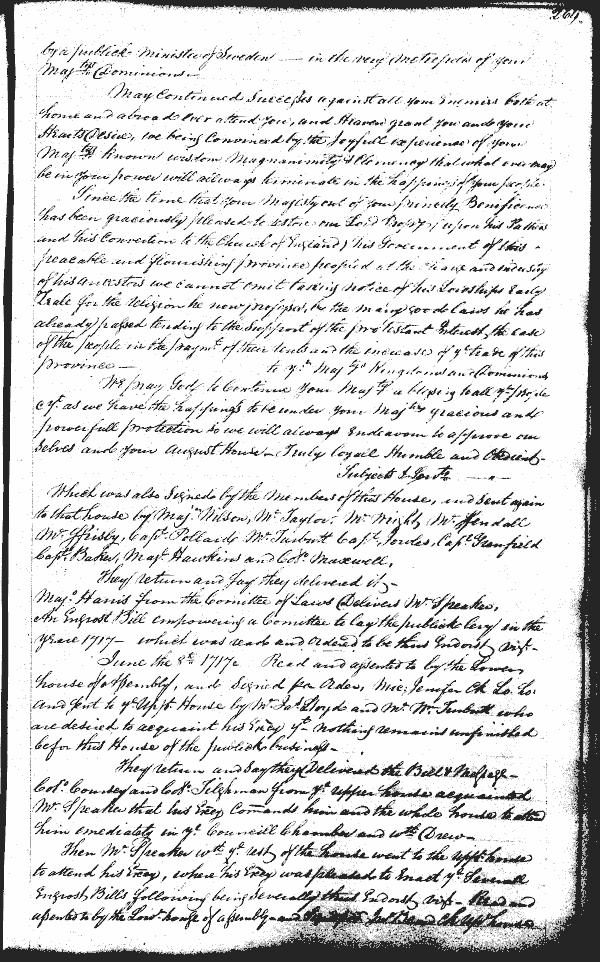 264.
by a publick Minister of Sweden — in the very Metropolis of your
Maj.tys Dominions.
May Continued Success against all your Enemies both at
home and abroad Ever attend you, and Heaven grant you and your
Hearts Desire, we being Convinced by the Joyfull experience of your
Maj.tys known wisdom Magnanimity & Clemency that what ever may
be in your power will allways terminate in the happiness of your people
Since the time that your Majesty out of your princely Beneficence
has been graciously pleased to restore our Lord Propry. upon his Fathers
and his Convertion to the Church of England) his Government of this
peaceable and flourishing province peopled at the Charge and industry
of his ancestors we cannot omit taking notice of his Lordships Early
Zeale for the Religion he now professes, by the many good Laws he has
already passed tending to the Support of the protestant Interest, the Ease
of the people in the paym.t of their rents and the increase of y.e trade of this
province — to y.r Maj.tys Kingdoms and Dominions
We pray God, to Continue your Maj.ty a blessing to all y.r people
as we have the happiness to be under your Maj.tys gracious and
powerfull protection so we will always Endeavour to approve our
selves and your August House — Truly loyall Humble and Obedient
Subjects &
Which was also Signed by the Members of this House, and sent again
to that house by Maj.r Wilson, M.r Taylor, M.r Wright, M.r
M.r Frisby, Cap.t Pollard M.r Turbutt Cap.t Jowles, Cap.t Greenfield
Cap.t Baker, Maj.r Hawkins and Col.o Maxwell,
They return and Say they delivered it —
Maj.r Harris from the Comittee of Laws Delivers M.r Speaker,
An Engrost Bill empowering a Comittee to lay the publick levy in the
year 1717 — which was read and ordered to be thus Endorst viz.t
June the 8th 1717. Read and assented to by the Lower
house of assembly, and Signed p.r Order, Mic: Jenifer Ck Lo. Ho
And Sent to y.e Upp.r House by M.r Ja.s Lloyd and M.r W.m Turbutt who
are desired to acquaint his Excy y.t nothing remains unfinished
before this House of the publick business —
They return and Say they Delivered the Bill & Message —
Col.o Coursey and Col.o Tilghman from y.e upper house acquainted
M.r Speaker that his Excy Comands him and the whole house to attend
him emediately in y.e Councill Chamber and w.th Drew —
Then M.r Speaker w.th y.e rest of the house went to the upp.r house
to attend his Excy, where his Excy was pleased to Enact y.e Severall
Engrost Bills following being severally thus Endorst viz.t Read and
assented to by the Low.r house of assembly and Ck Up.r house